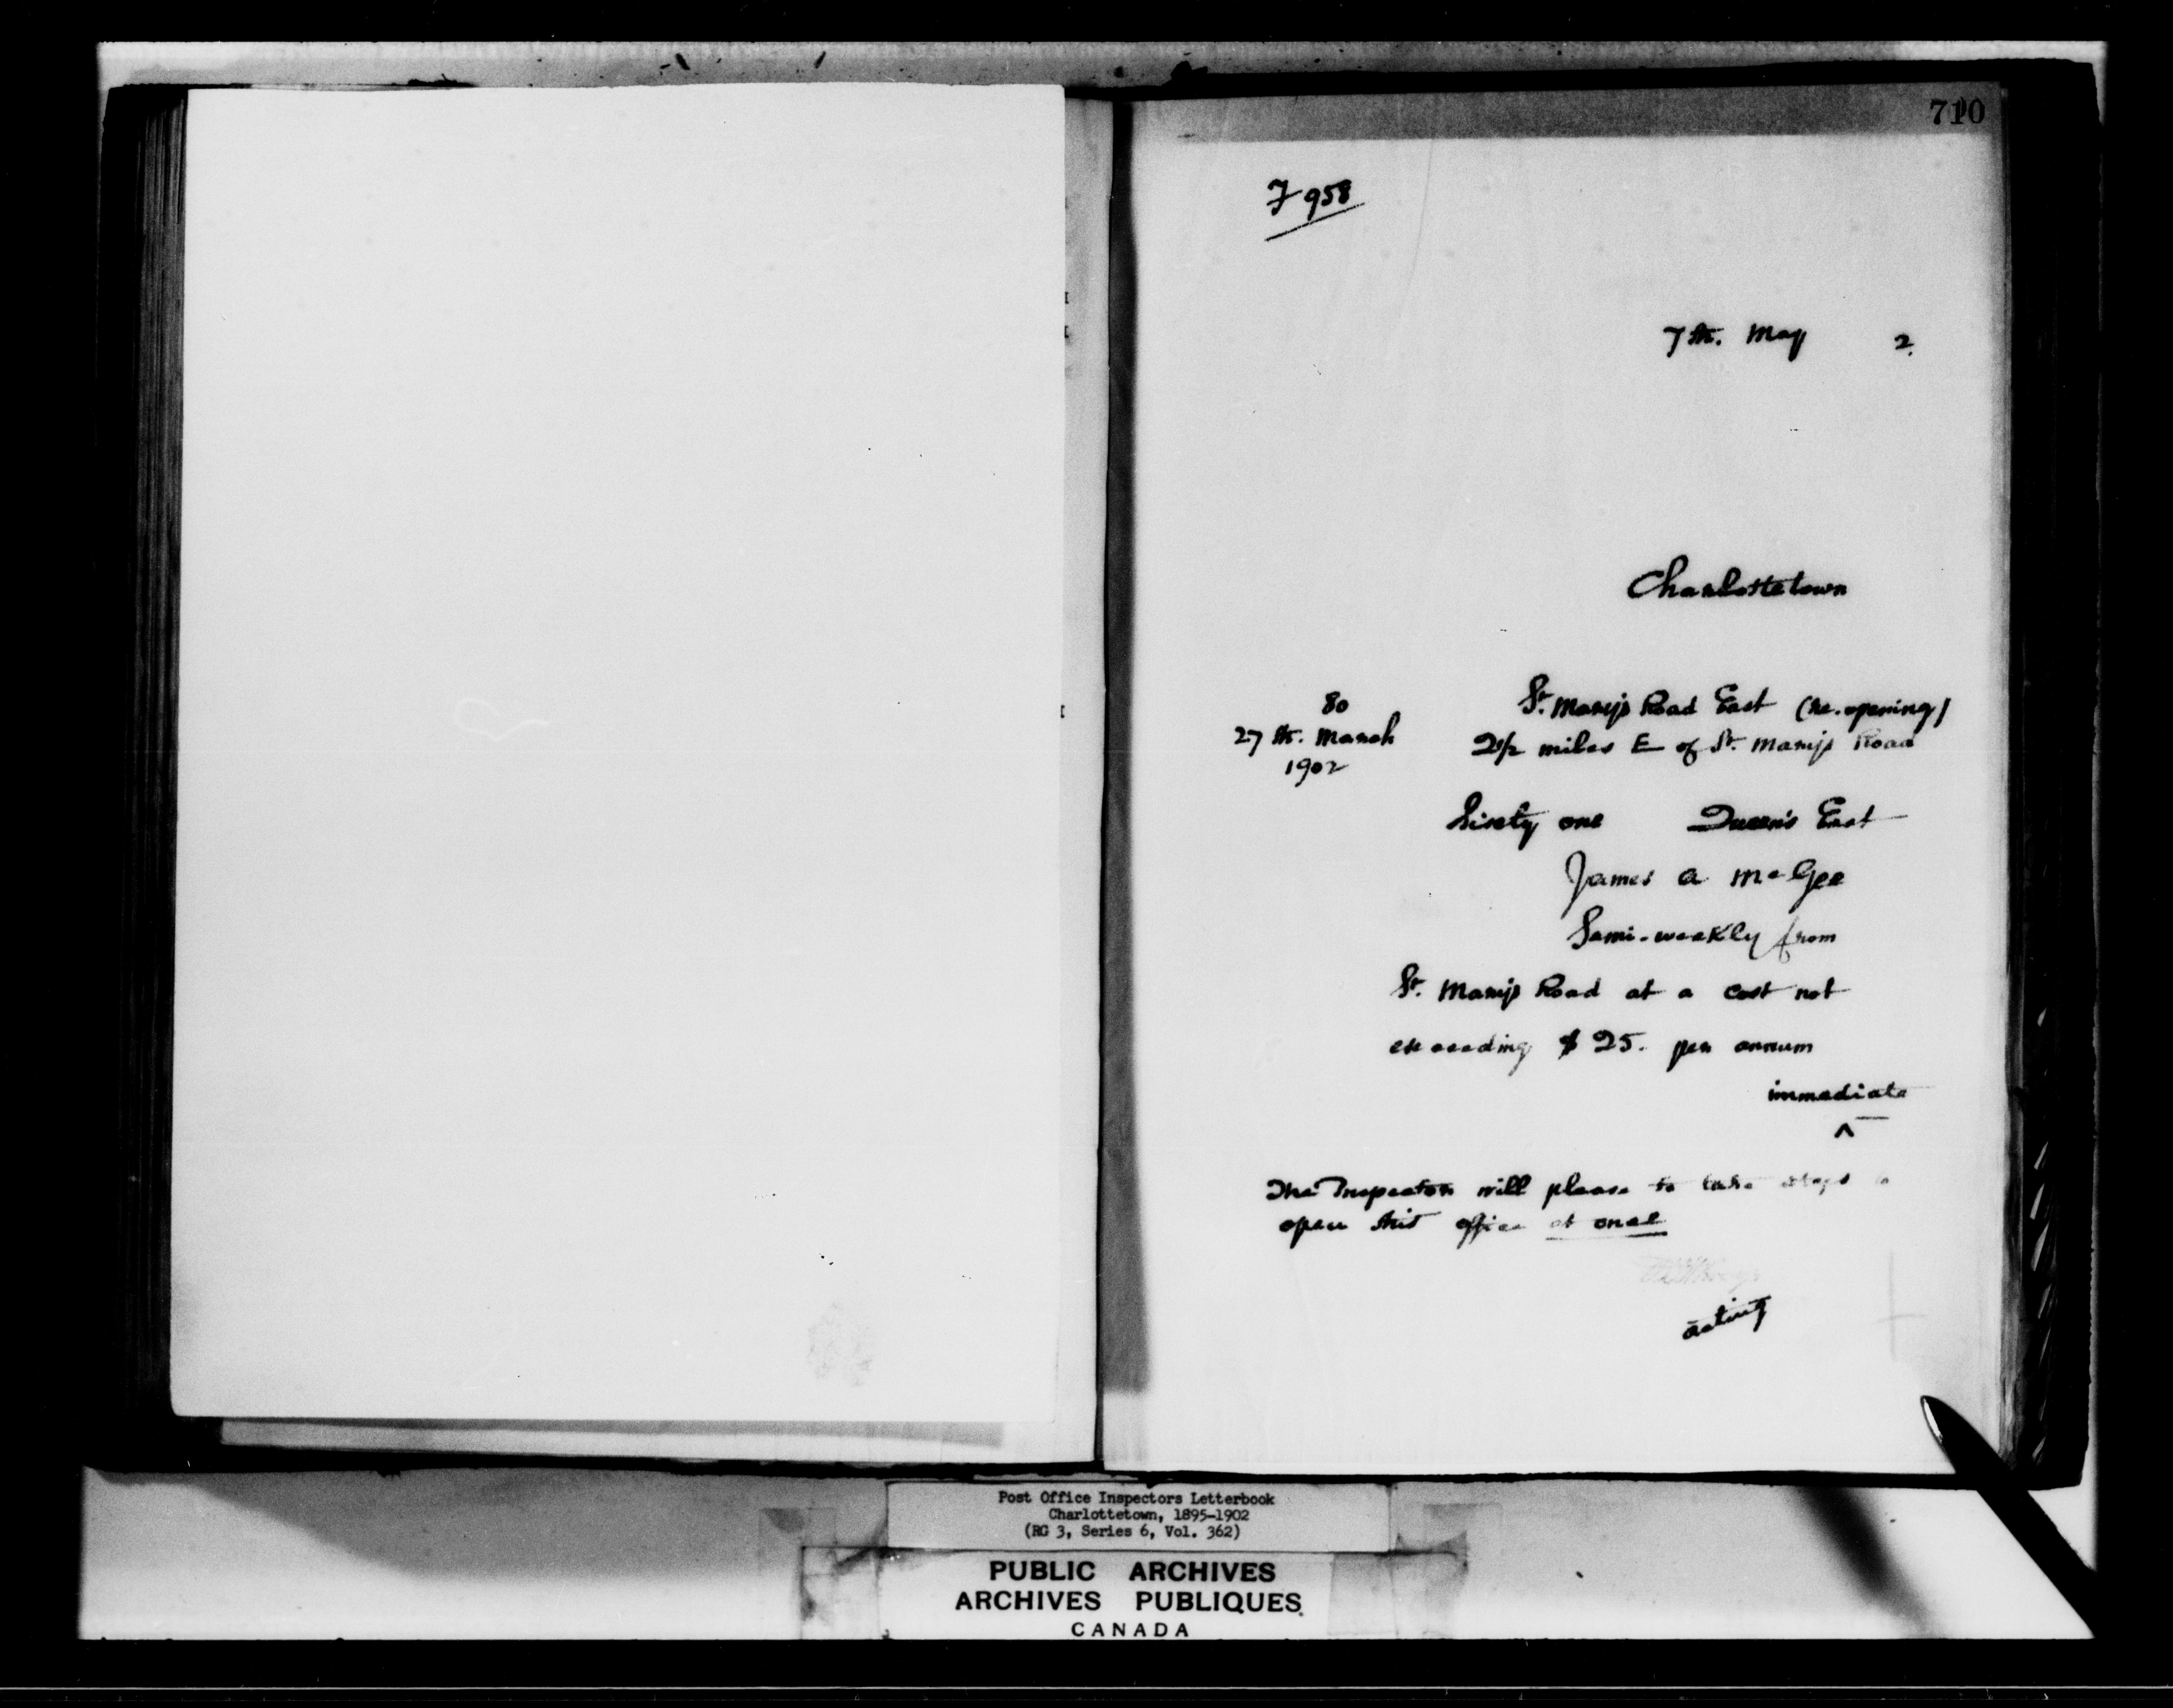 710
F 958
7th. May 2.
Charlottetown
80
27th. March
1902
St. Mary's Road East (re-opening)
2½ miles E of St. Mary's Road
Sixty one Queen's East
James A McGee
Semi-weekly from
St. Mary's Road at a cost not
exceeding $25. per annum
immediate
^
The Inspector will please to take steps to
open this office at once
acting
Post Office Inspectors Letterbook
Charlottetown, 1895-1902
(RG 3, Series 6, Vol. 362)
PUBLIC ARCHIVES
ARCHIVES PUBLIQUES
CANADA